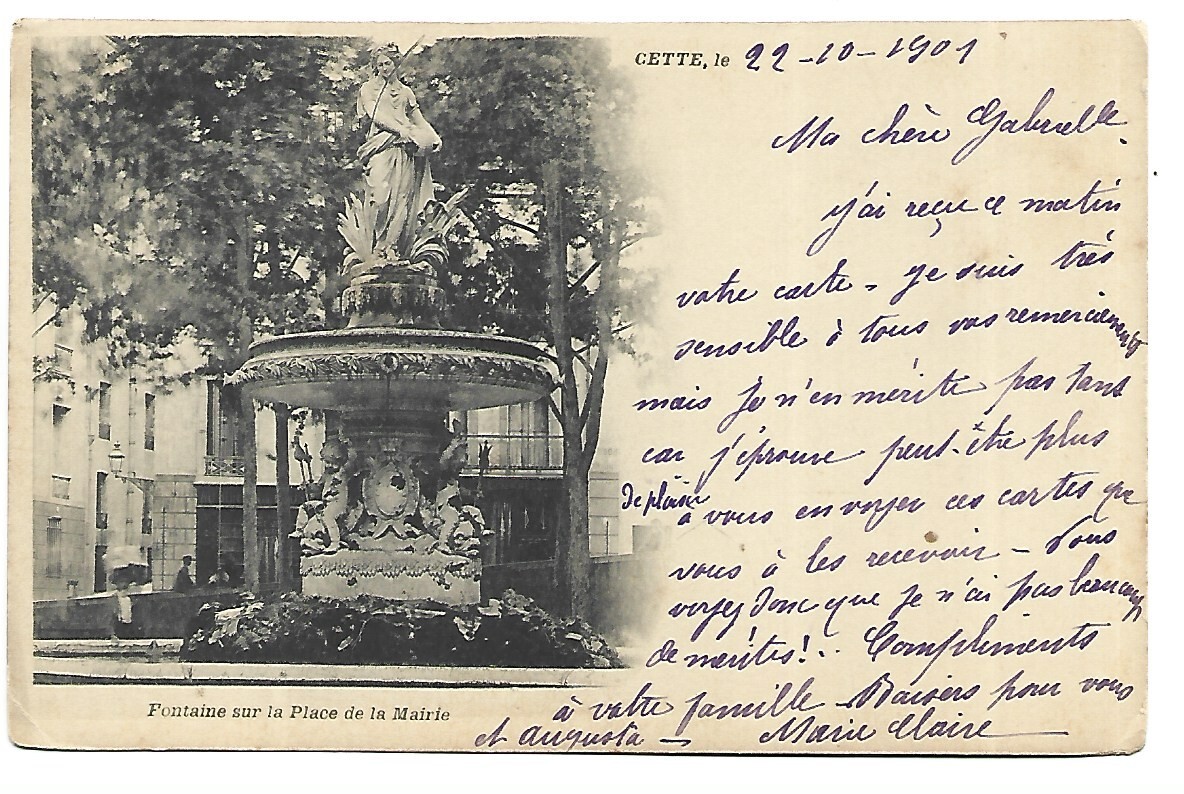 CETTE, le 22-10-1901
Ma chère Gabrielle.
j'ai reçu ce matin
votre carte, je suis très
sensible à tous vos remerciements
mais je n'en mérite pas tant
car j'éprouve peut-être plus
de plaisir
à vous envoyer ces cartes que
vous à les recevoir - Vous
voyez donc que je n'ai pas beaucoup
de mérites!.. Compliments
à votre famille - Baisers pour vous
et Augusta - Marie Claire
Fontaine sur la Place de la Mairie